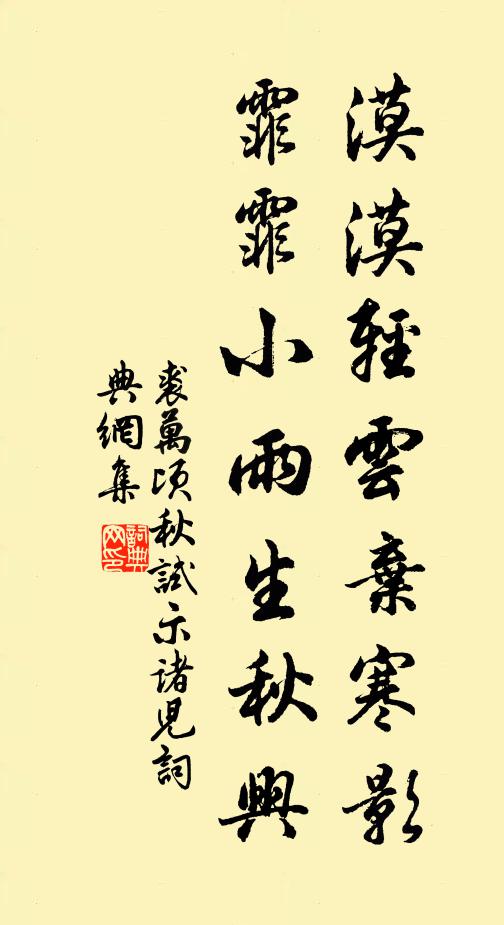 漠漠輕雲棄寒影
霏霏小雨生秋興
裘萬頃秋試示諸兒詞
典網集
詞典
网印